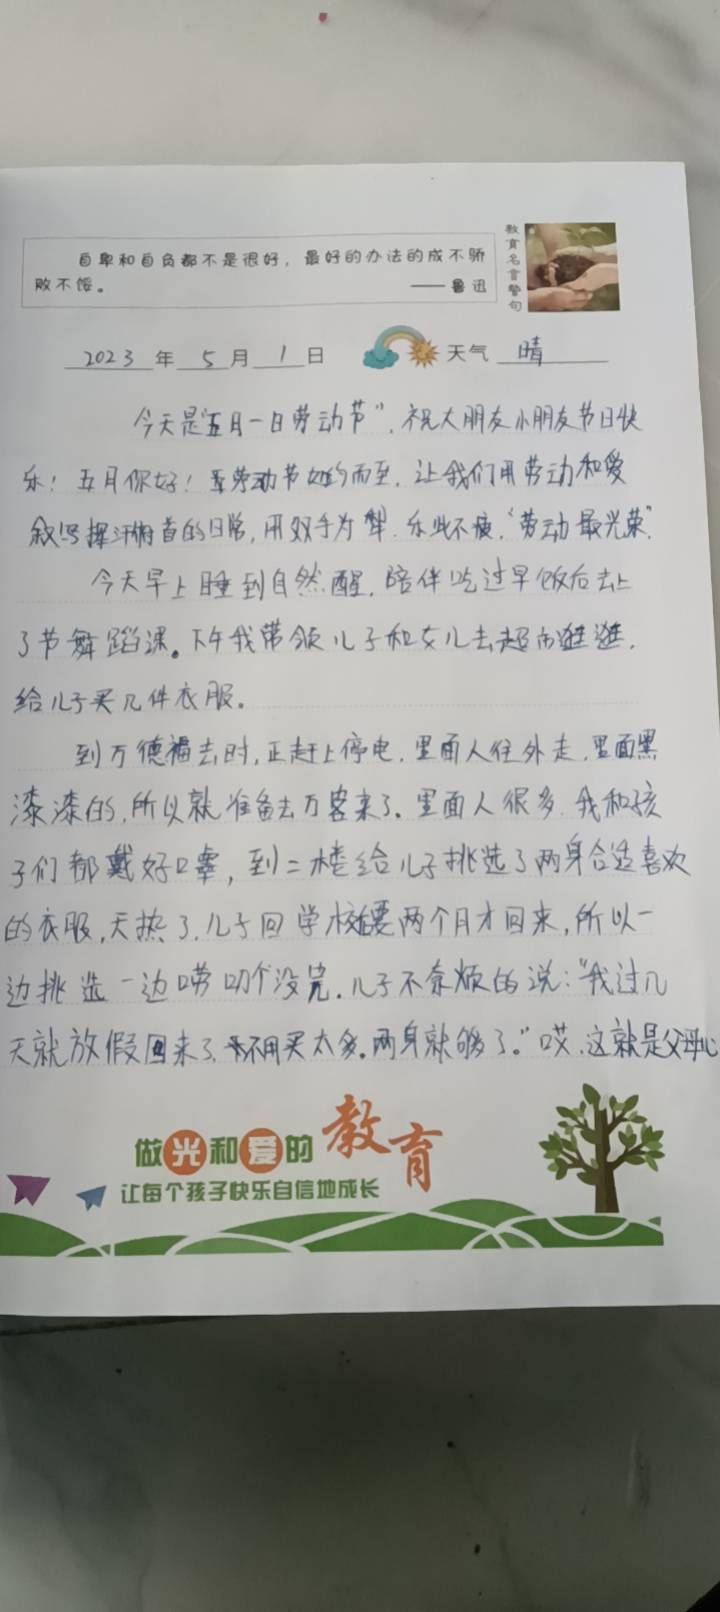 自卑和自负都不是很好，最好的办法的成不骄
败不馁。
——鲁迅
教育名言警句
2023年5月1日 天气 晴
今天是“五月一日劳动节”，祝大朋友小朋友节日快
乐！五月你好！劳动节如约而至，让我们用劳动和爱
叙写挥汗俯首的日常，用双手为犁，乐此不疲，“劳动最光荣”。
今天早上睡到自然醒，陪伴吃过早饭后去上
了节舞蹈课。下午我带领儿子和女儿去超市逛逛，
给儿子买几件衣服。
到万德福去时，正赶上停电，里面人往外走，里面黑
漆漆的，所以就准备去万客来了。里面人很多，我和孩
子们都戴好口罩，到二楼给儿子挑选了两身合适喜欢
的衣服，天热了，儿子回学校要两个月才回来，所以一
边挑选一边唠叨个没完，儿子不奈烦的说：“我过几
天就放假回来了，不用买太多。两身就够了。”哎，这就是父母心
做光和爱的教育
让每个孩子快乐自信地成长